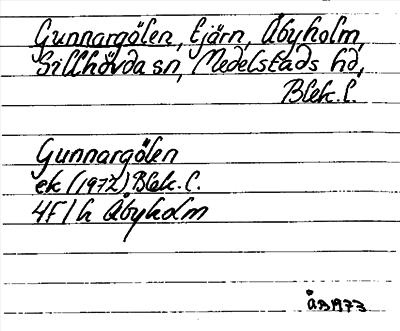 Gunnargölen, tjärn, Åbyholm,
Sillhövda sn, Medelstads hd,
Blek. l.
Gunnargölen
ek (1972) Blek. l.
4F1h Åbyholm
ÅB1973